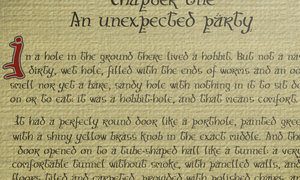 Chapter One
An unexpected party
In a hole in the ground there lived a hobbit. But not a na
dirty, wet hole, filled with the ends of worms and an oo
smell nor yet a bare, sandy hole with nothing in it to sit do
on or to eat it was a hobbit-hole, and that means comfort.
It had a perfely round door like a porthole, painted gree
with a shiny yellow brass knob in the exact riddle. And th
door opened on to a tube-shaped hall like a tunnel: a very
comfortable tunnel without smoke, with panelled walls, and
floors tiled and carpeted, provided with polished chairs